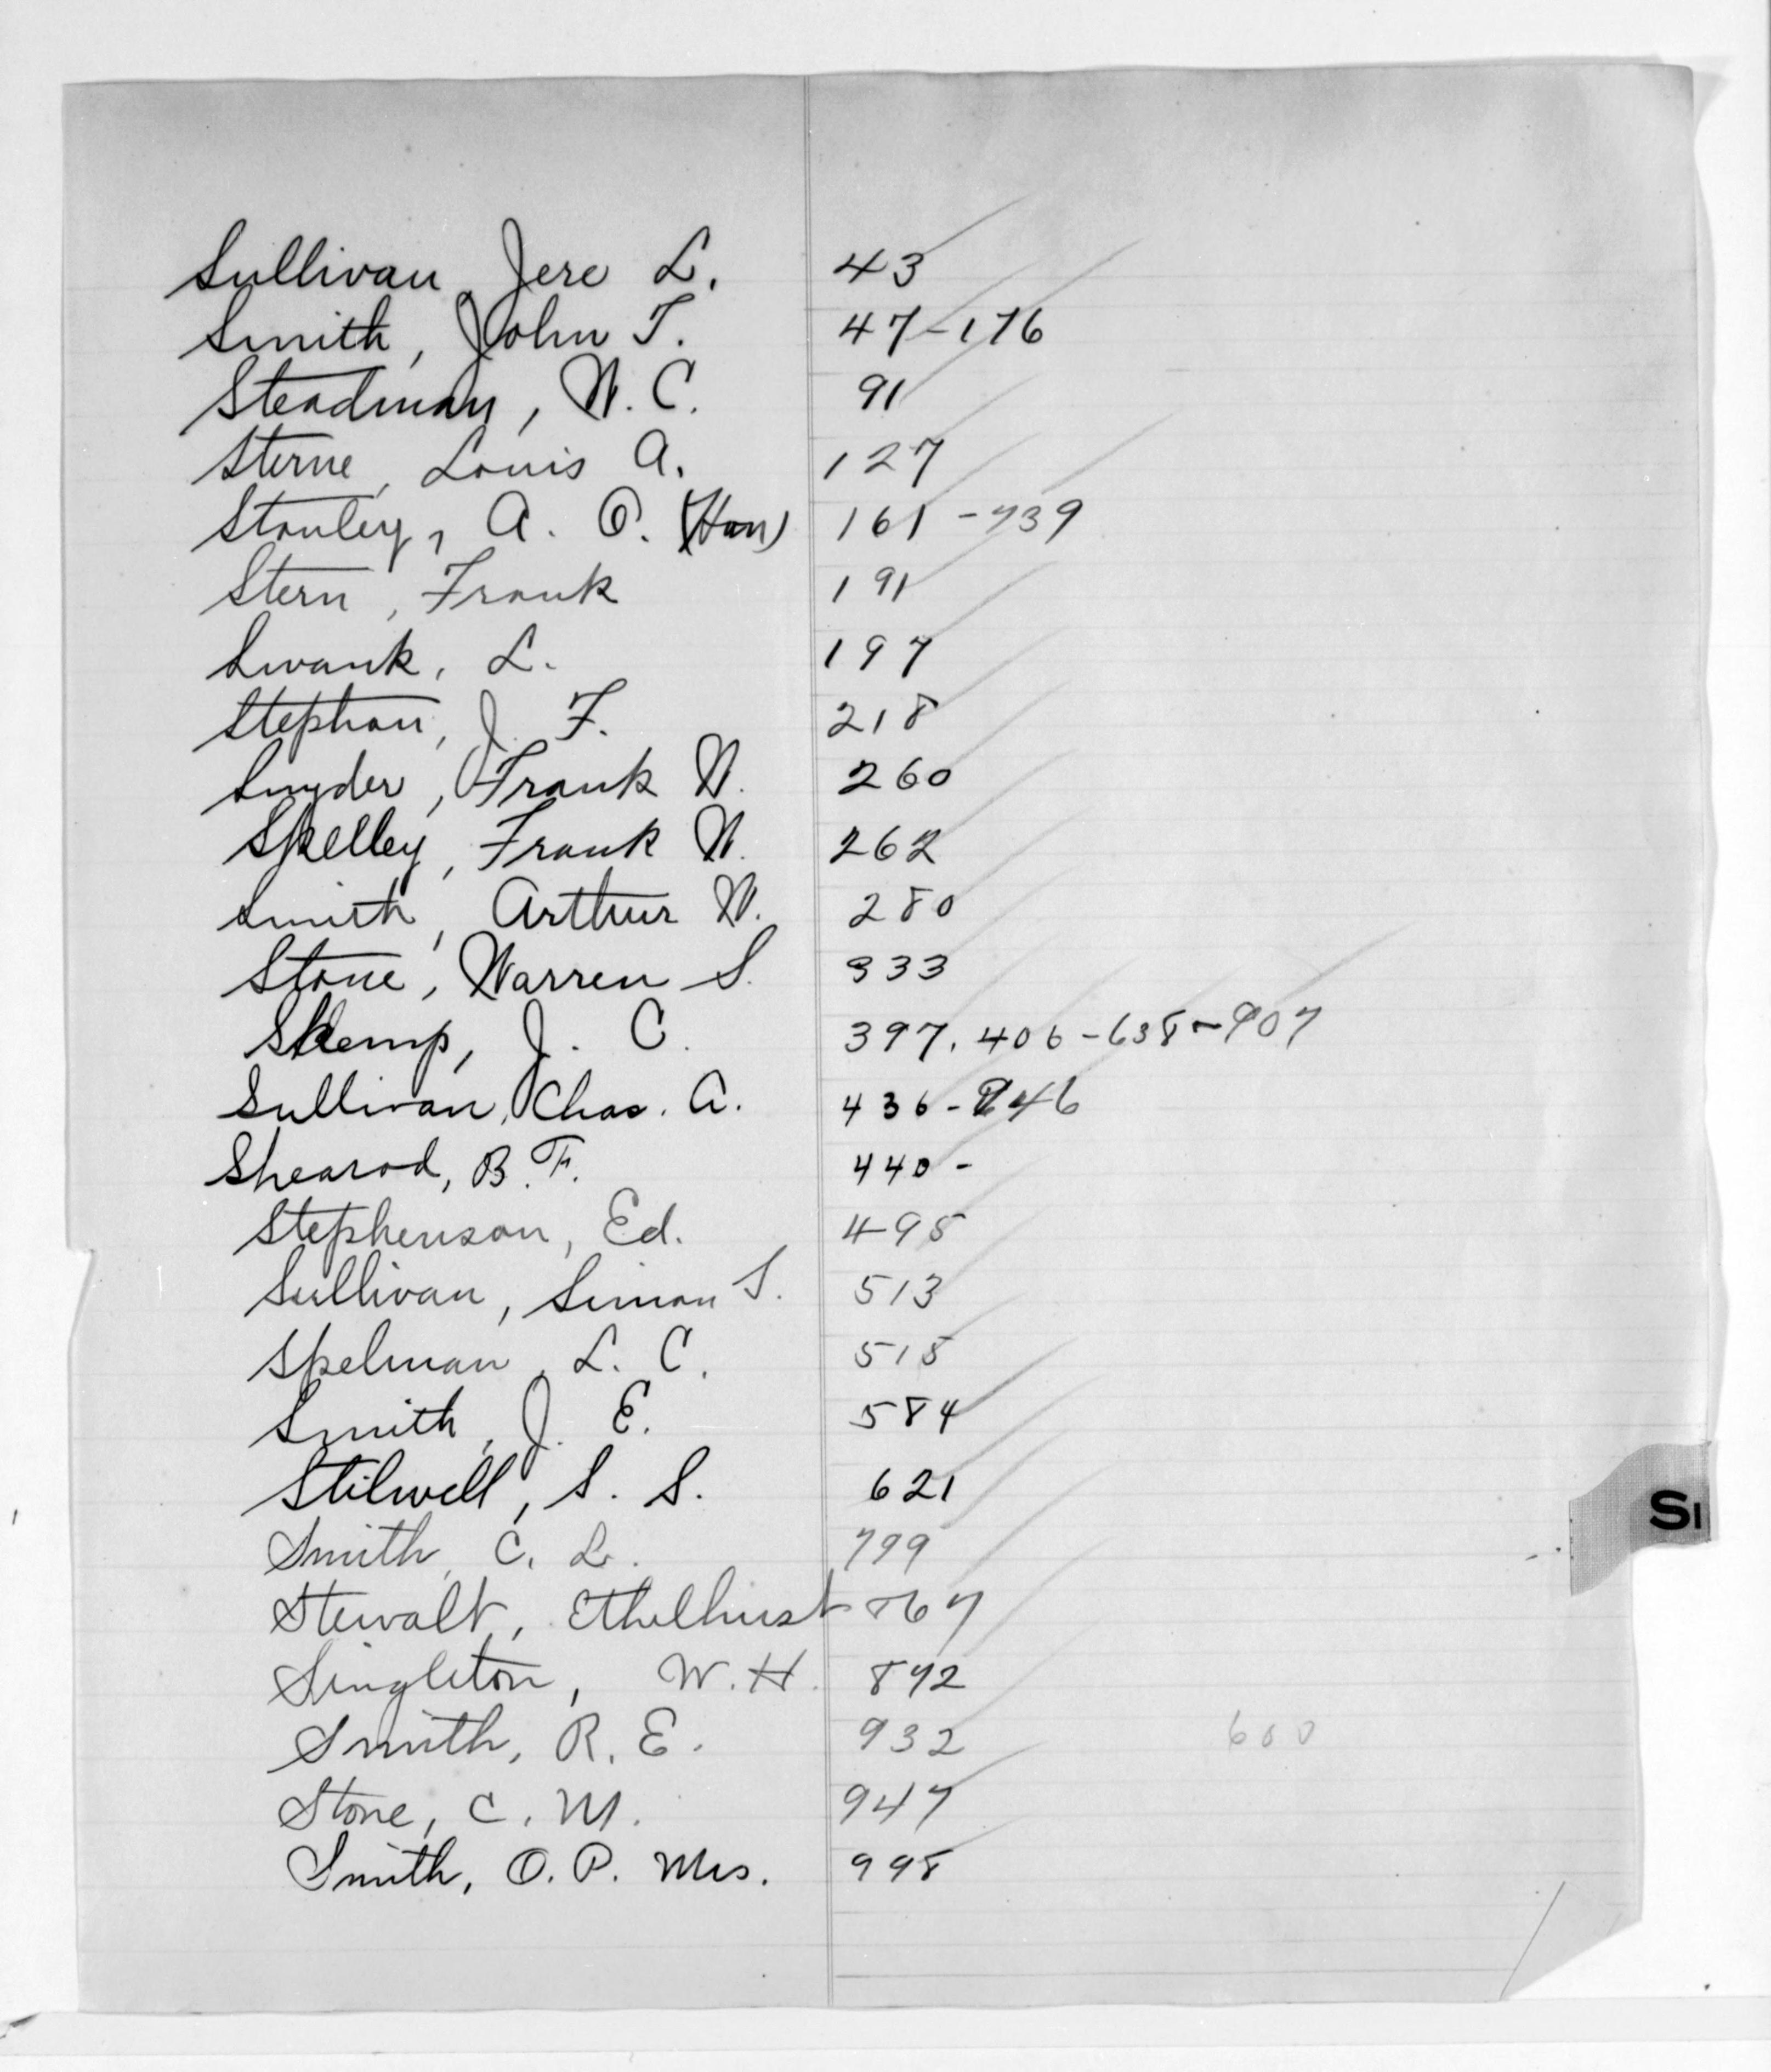 Sullivan, Jere L. 43
Smith, John T. 47-176
Steadman, W. C. 91
Sterne, Louis A. 127
Stanley, A. O. (Hon) 161-739
Stern, Frank 191
Swank, L. 197
Stephan, J. F. 218
Snyder, Frank W. 260
Skelley, Frank W. 262
Smith, Arthur W. 280
Stone, Warren S. 333
Skemp, J. C. 397. 406-638-907
Sullivan, Chas. A. 436-846
Shearod, B. F. 440-
Stephenson, Ed. 498
Sullivan, Simon T. 513
Spelman, L. C. 518
Smith, J. E. 584
Stilwell, S. S. 621
Smith, C. L. 799
Stewalt, Ethelhurst 867
Singleton, W. H. 872
Smith, R. E. 932 600
Stone, C. M. 947
Smith, O. P. Mrs. 998
SI